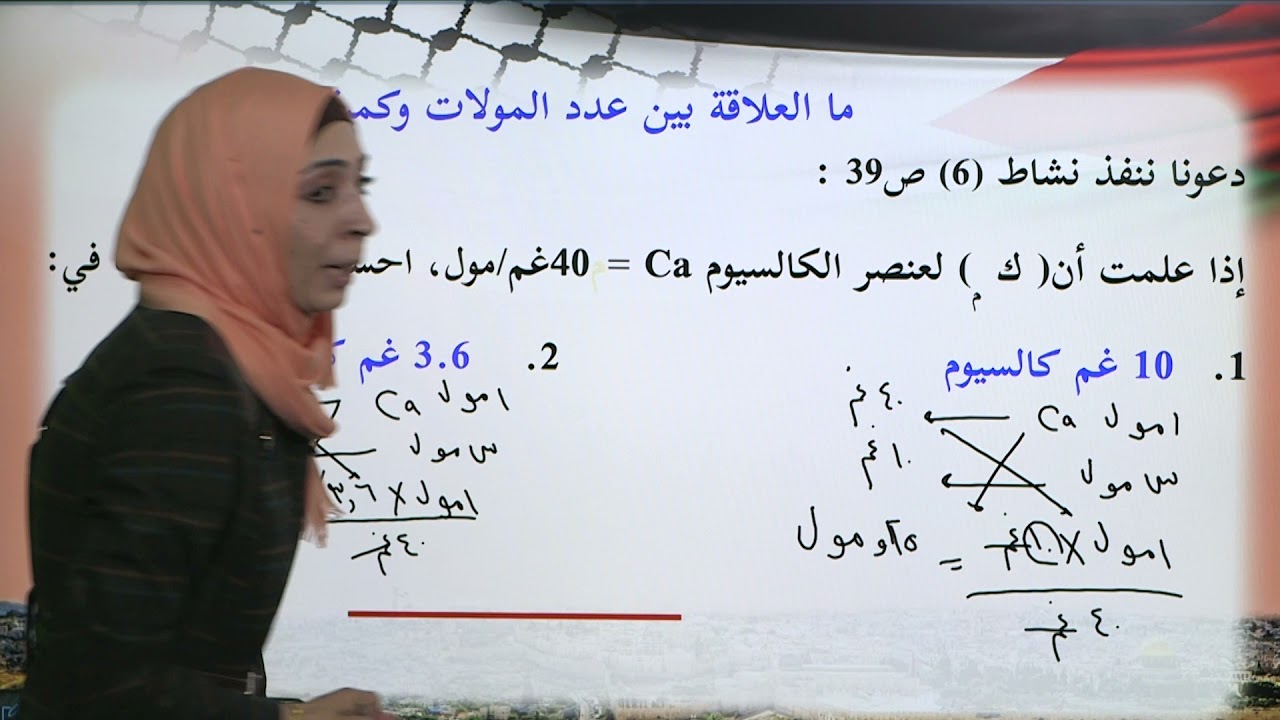 ما العلاقة بين عدد المولات
دعونا ننفذ نشاط (6) ص39 :
إذا علمت أن( ك م) لعنصر الكالسيوم Ca = 40غم/مول، في:
1. 10 غم كالسيوم
١مول Ca ٤٠ غم
س مول ١٠ غم
١مول X ١٠ غم = ٢٥و مول
٤٠ غم
2. 3.6 غم
١مول Ca
س مول
١مول X ٣,٦
٤٠ غم